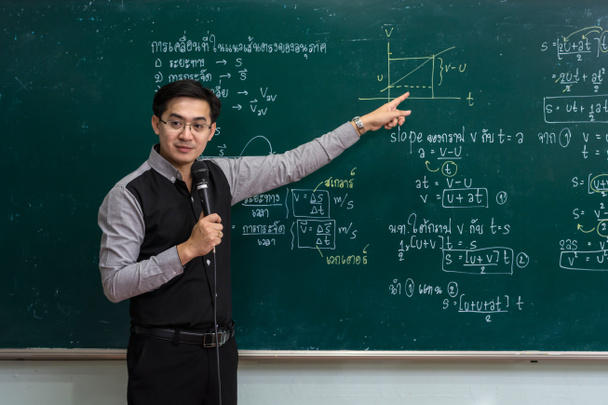 การเคลื่อนที่ในแนวเส้นตรงของอนุภาค
1) ระยะทาง → S
2) การกระจัด → S⃗
→ V₂v
→ V⃗₂v
ระยะทาง
เวลา
V = ΔS/Δt m/s
สเกลาร์
= การกระจัด
เวลา
V⃗ = ΔS⃗/Δt m/s
เวกเตอร์
V
u
V-u
t
slope ของกราฟ v กับ t = a
a = V-U/t
at = V-U
V = U+at ①
พ.ท.ใต้กราฟ v กับ t = s
1/2 [U+V] t = s
S = [U+V]t/2 ②
นำ ① แทน ②
S = [U+U+at] t/2
S = [2U+at]t/2
= 2Ut/2 + at²/2
S = Ut + 1/2 at²
จาก ①